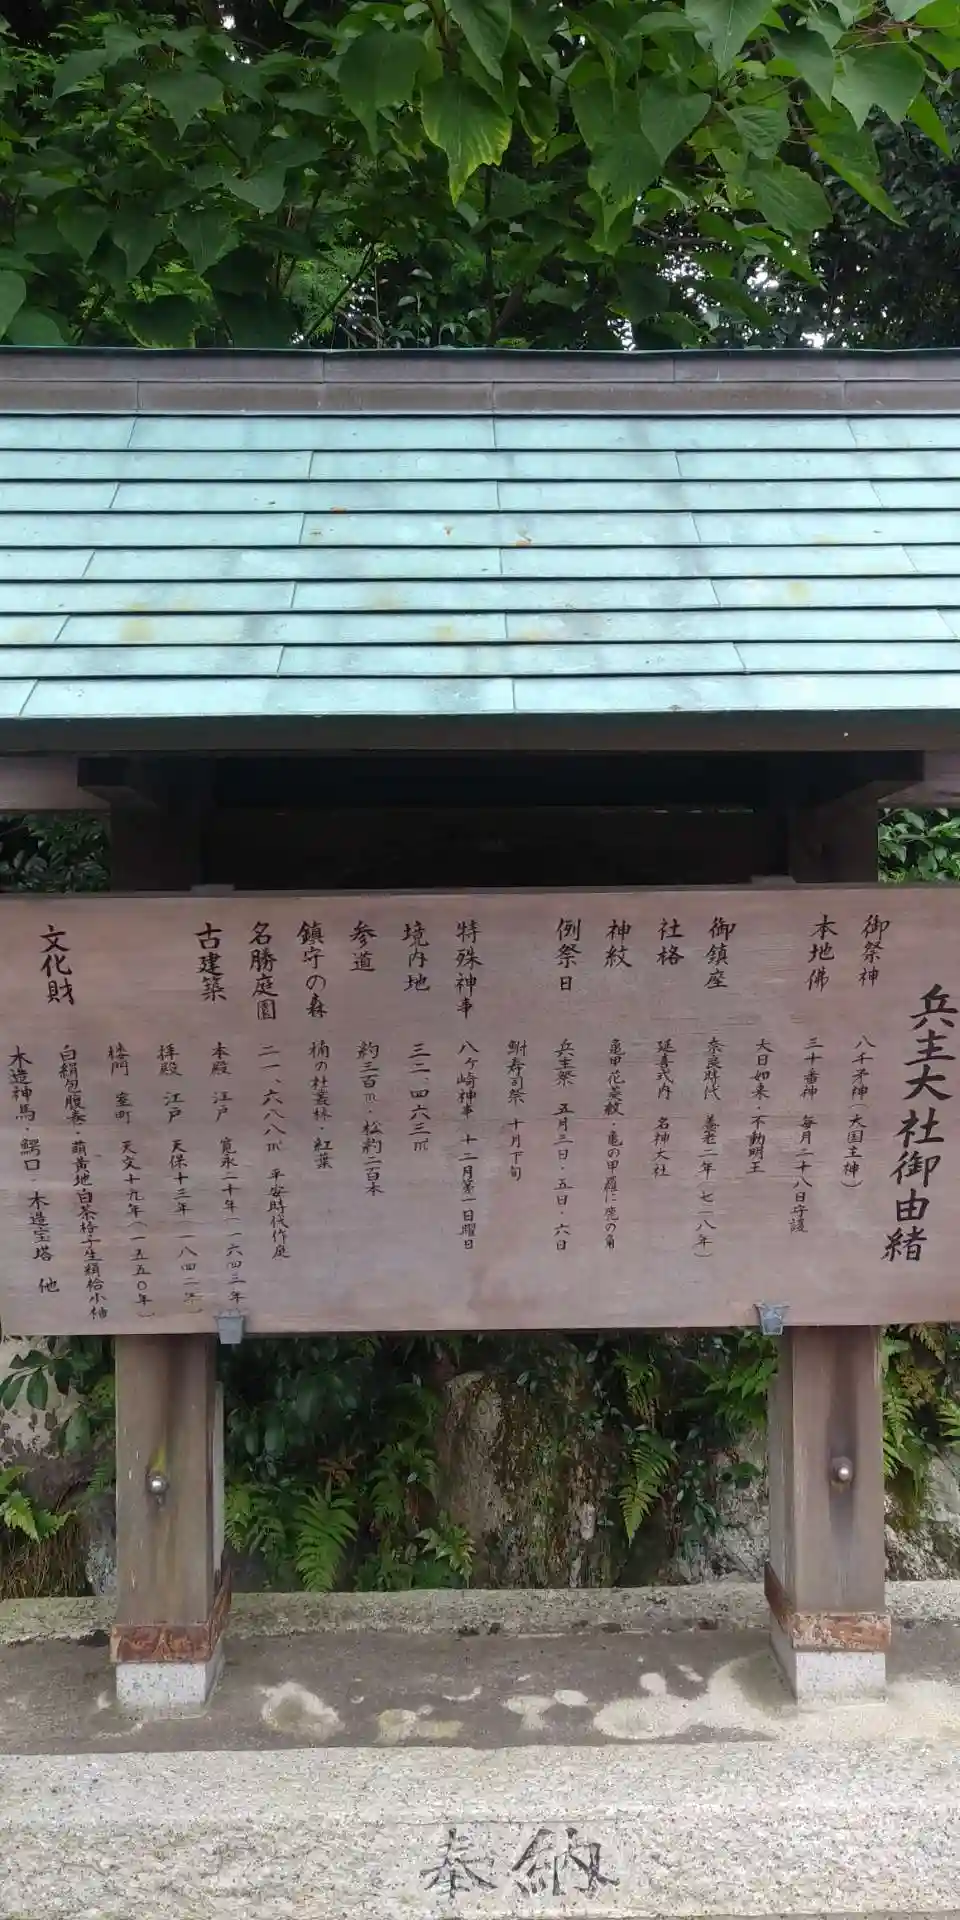 兵主大社御由緒
御祭神 八千矛神(大国主神)
本地佛 三十番神 毎月二十八日守護
大日如来・不動明王
御鎮座 奈良時代 養老二年(七一八年)
社格 延喜式内 名神大社
神紋 亀甲花菱紋・亀の甲羅に鹿の角
例祭日 兵主祭 五月三日・五日・六日
鮒寿司祭 十月下旬
特殊神事 八ヶ崎神事 十二月第一日曜日
境内地 三二、四六三㎡
参道 約三百m・松約二百本
鎮守の森 楠の社叢林・紅葉
名勝庭園 二一、六八八㎡ 平安時代作庭
古建築 本殿 江戸 寛永二十年(一六四三年)
拝殿 江戸 天保十三年(一八四二年)
楼門 室町 天文十九年(一五五〇年)
文化財 白絹包腹巻・萌黄地白茶格子生絹袷小袖
木造神馬・鰐口・木造宝塔 他
奉納